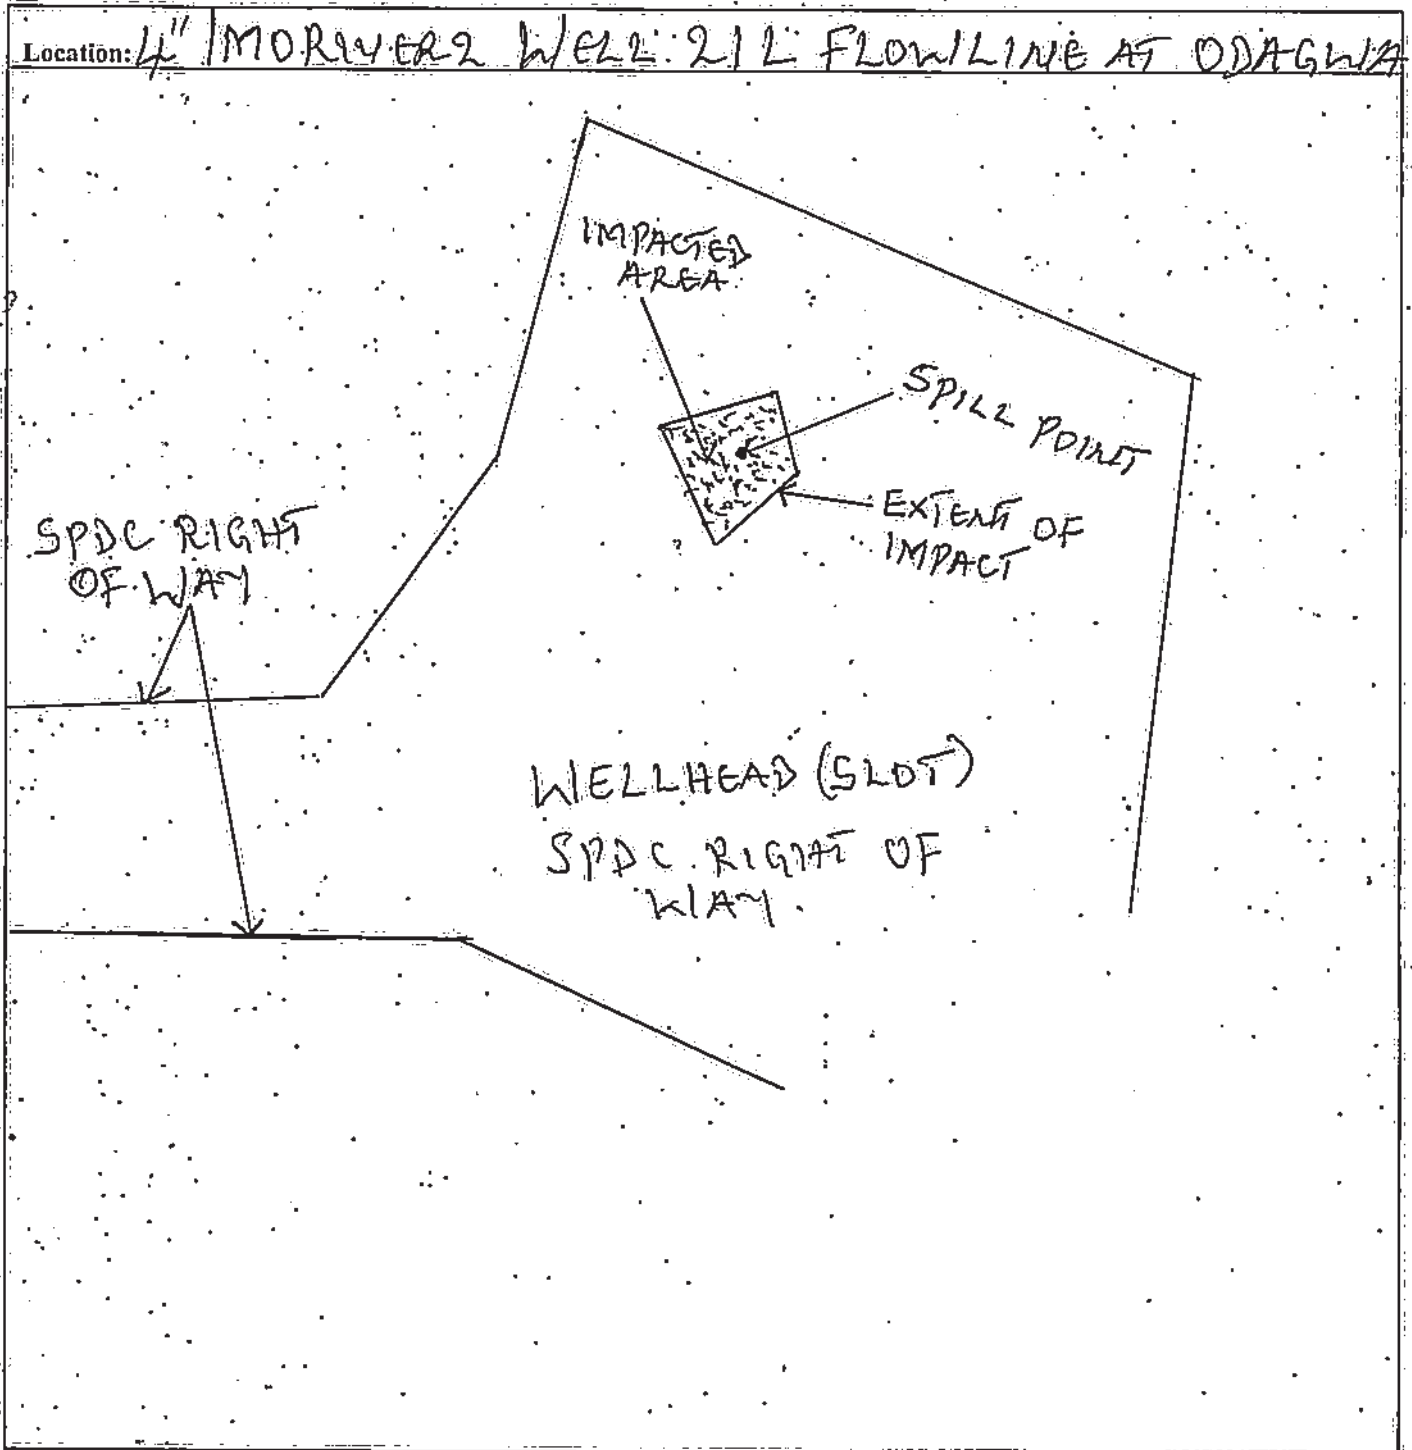 Location: 4" IMORIVER2 WELL 21L FLOWLINE AT ODAGWA
IMPACTED
AREA
SPILL POINT
EXTENT OF
IMPACT
SPDC RIGHT
OF WAY
WELLHEAD (SLOT)
SPDC RIGHT OF
WAY